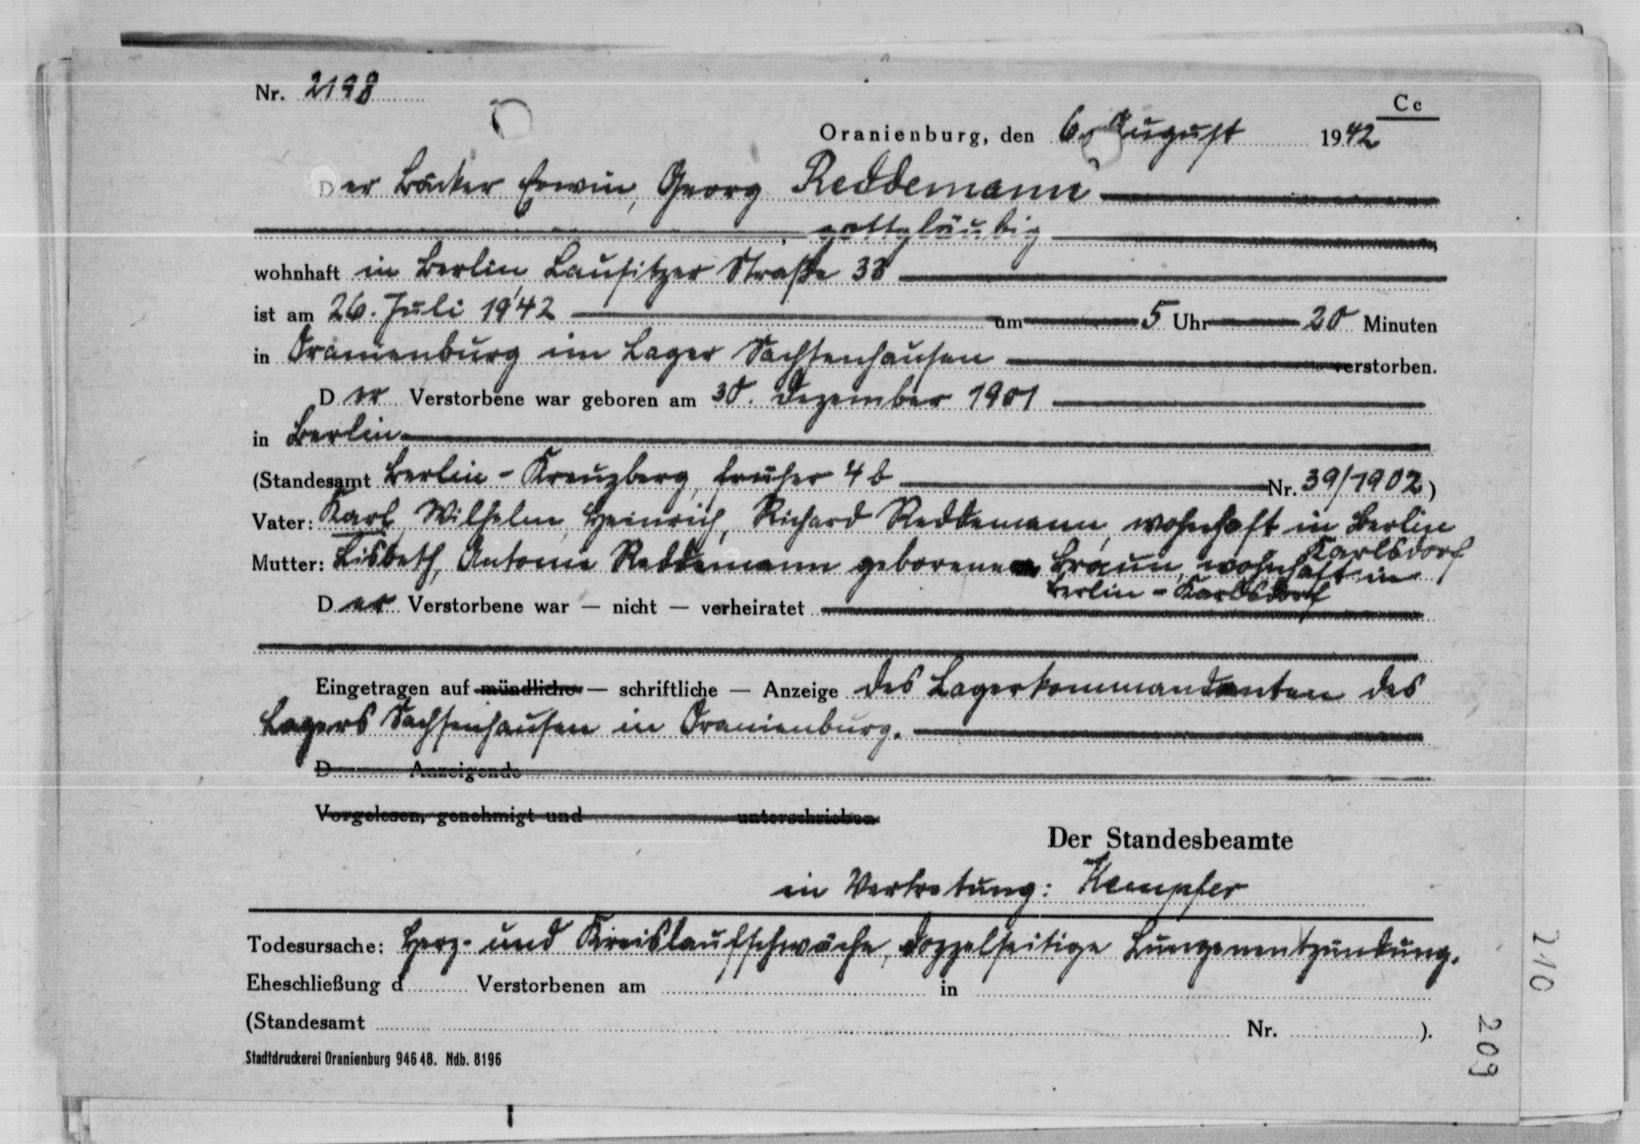 Nr. 2198
Cc
Oranienburg, den 6. August 1942
Der Bäcker Erwin, Georg Reddemann
gottgläubig
wohnhaft in Berlin Lausitzer Straße 38
ist am 26. Juli 1942 um 5 Uhr 20 Minuten
in Oranienburg im Lager Sachsenhausen verstorben.
Der Verstorbene war geboren am 30. Dezember 1901
in Berlin
(Standesamt Berlin-Kreuzberg, früher 4b Nr. 39/1902)
Vater: Karl Wilhelm Heinrich, Richard Reddemann, wohnhaft in Berlin
Karlsdorf
Mutter: Lisbeth, Antonie Reddemann geborene Braun, wohnhaft in
Berlin-Karlsdorf
Der Verstorbene war — nicht — verheiratet
Eingetragen auf mündliche — schriftliche — Anzeige des Lagerkommandanten des
Lagers Sachsenhausen in Oranienburg.
D Anzeigende
Vorgelesen, genehmigt und unterschrieben
Der Standesbeamte
in Vertretung: Kempfer
Todesursache: Herz- und Kreislaufschwäche, doppelseitige Lungenentzündung.
Eheschließung d Verstorbenen am in
(Standesamt Nr. ).
Stadtdruckerei Oranienburg 946 48. Ndb. 8196
210
209